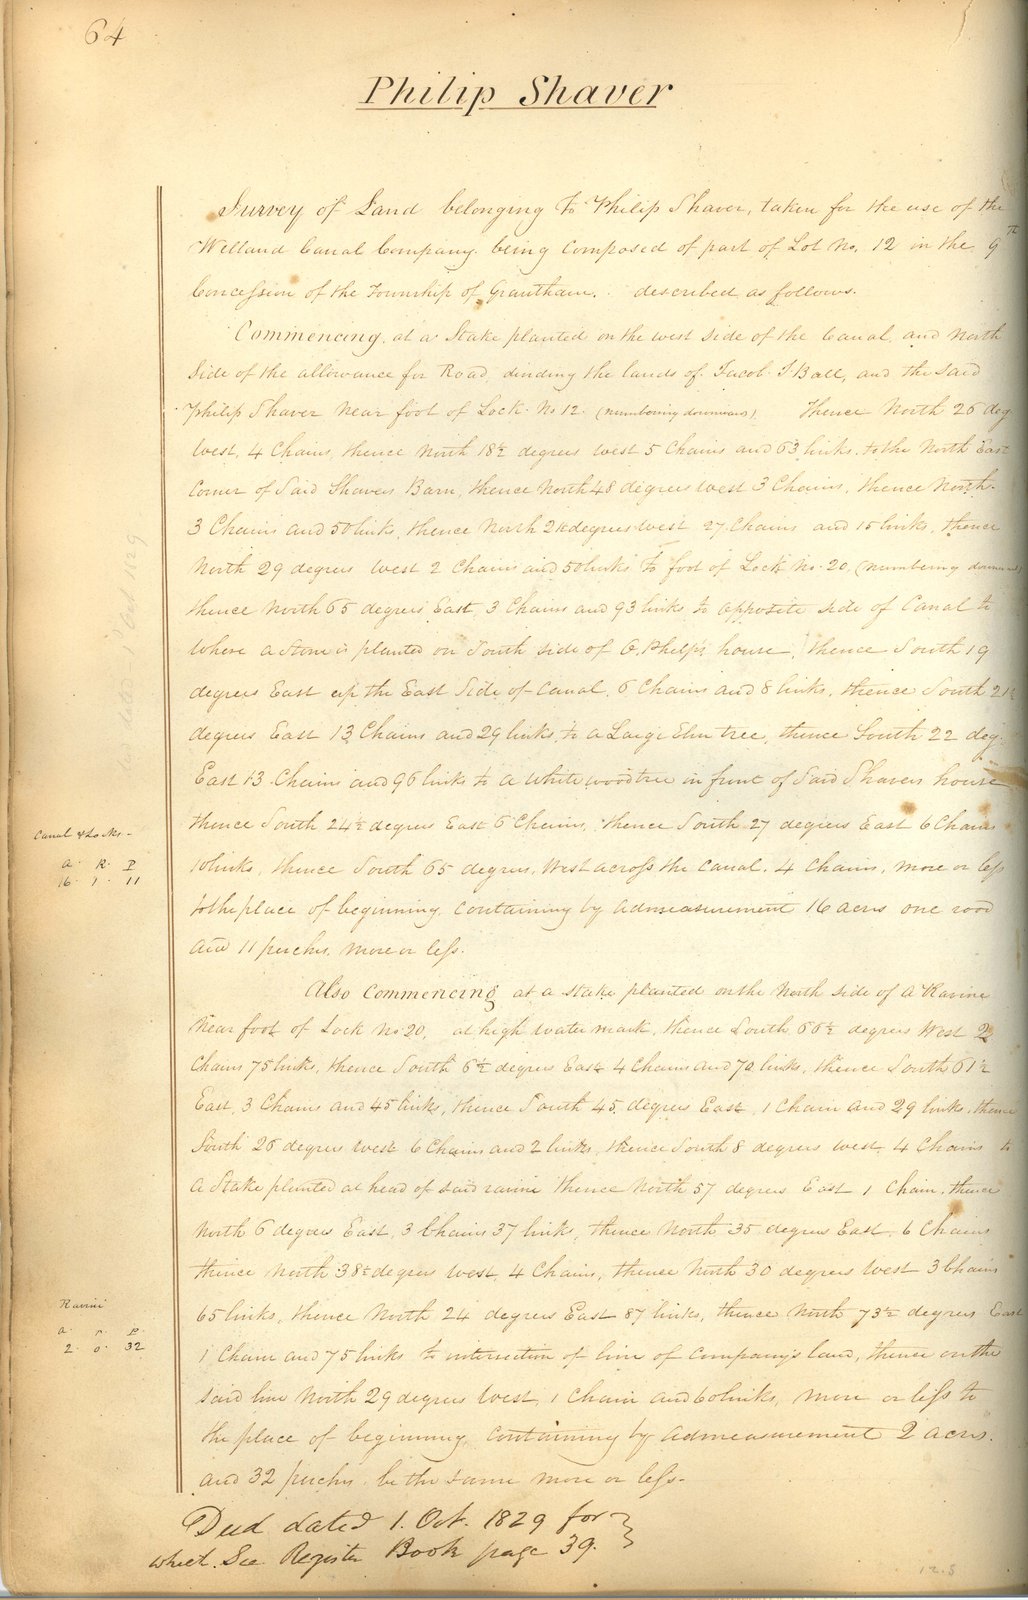 64
Philip Shaver
Survey of Land belonging to Philip Shaver, taken for the use of the
Welland Canal Company. being composed of part of Lot No. 12 in the 9th
Concession of the Township of Grantham. described as follows.
Commencing, at a Stake planted on the west side of the Canal, and North
Side of the allowance for Road, dividing the lands of Jacob I. Ball, and the said
Philip Shaver near foot of Lock No 12. (numbering downwards), Thence North 26 deg
West, 4 Chains, thence North 18½ degrees West 5 Chains and 63 links. to the North East
Corner of Said Shavers Barn, thence North 48 degrees West 3 Chains, thence North.
3 Chains and 50 links, thence North degrees West 27 Chains and 15 links, thence
North 29 degrees West 2 Chains and 50 links to foot of Lock No. 20, (numbering downward)
thence North 65 degrees East 3 Chains and 93 links to opposite side of Canal to
Where a Stone is planted on South side of O. Phelps house, thence South 19
degrees East up the East Side of Canal, 6 Chains and 8 links, thence South 21½
degrees East 13 Chains and 29 links, to a Large Elm tree, thence South 22 deg.
East 13 Chains and 96 links to a White wood tree in front of Said Shavers house
thence South 24½ degrees East 6 Chains, thence South 27 degrees East 6 Chains
10 links, thence South 65 degrees, West across the Canal. 4 Chains, more or less
to the place of beginning, containing by admeasurement 16 acres one rood
and 11 perches, more or less.
Canal & Locks -
A. R. P
16. 1. 11
Also Commencing at a stake planted on the North side of a Ravine
Near foot of Lock No 20, at high water mark, thence South 66½ degrees West 2
Chains 75 links, thence South 6½ degrees East 4 Chains and 70 links, thence South 61½
East, 3 Chains and 45 links, thence South 45 degrees East, 1 Chain and 29 links, thence
South 26 degrees West 6 Chains and 2 links, thence South 8 degrees West 4 Chains to
a Stake planted at head of said ravine thence North 57 degrees East 1 Chain, thence
North 6 degrees East, 3 Chains 37 links, thence North 35 degrees East, 6 Chains
thence North 38½ degrees West, 4 Chains, thence North 30 degrees West 3 Chains
65 links, thence North 24 degrees East 87 links, thence North 73½ degrees East
1 Chain and 75 links to intersection of line of Company's land, thence on the
said line North 29 degrees West, 1 Chain and 60 links, more or less to
the place of beginning, containing by admeasurement 2 acres.
and 32 perches be the same more or less.
Ravine
a. r. P.
2. 0. 32
Deed dated 1. Oct. 1829 for
which See Register Book page 39.
Deed dated 1st Oct 1829